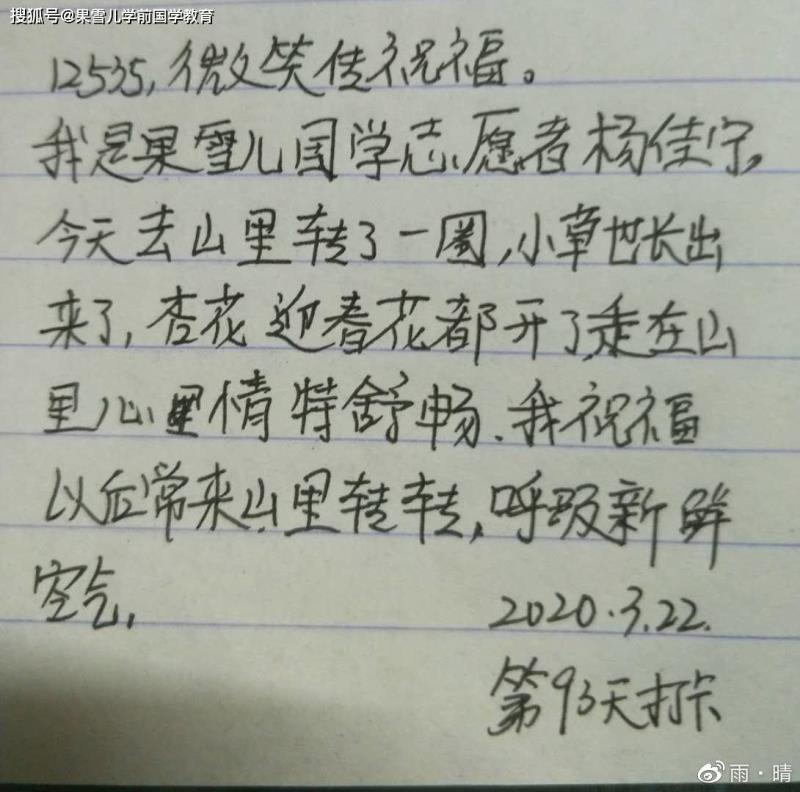 搜狐号@果雪儿学前国学教育
12535,微笑传祝福。
我是果雪儿国学志愿者杨佳宁,
今天去山里转了一圈,小草也长出
来了,杏花迎春花都开了走在山
里心里情特舒畅、我祝福
以后常来山里转转,呼吸新鲜
空气,
2020.3.22.
第93天打卡
雨·晴